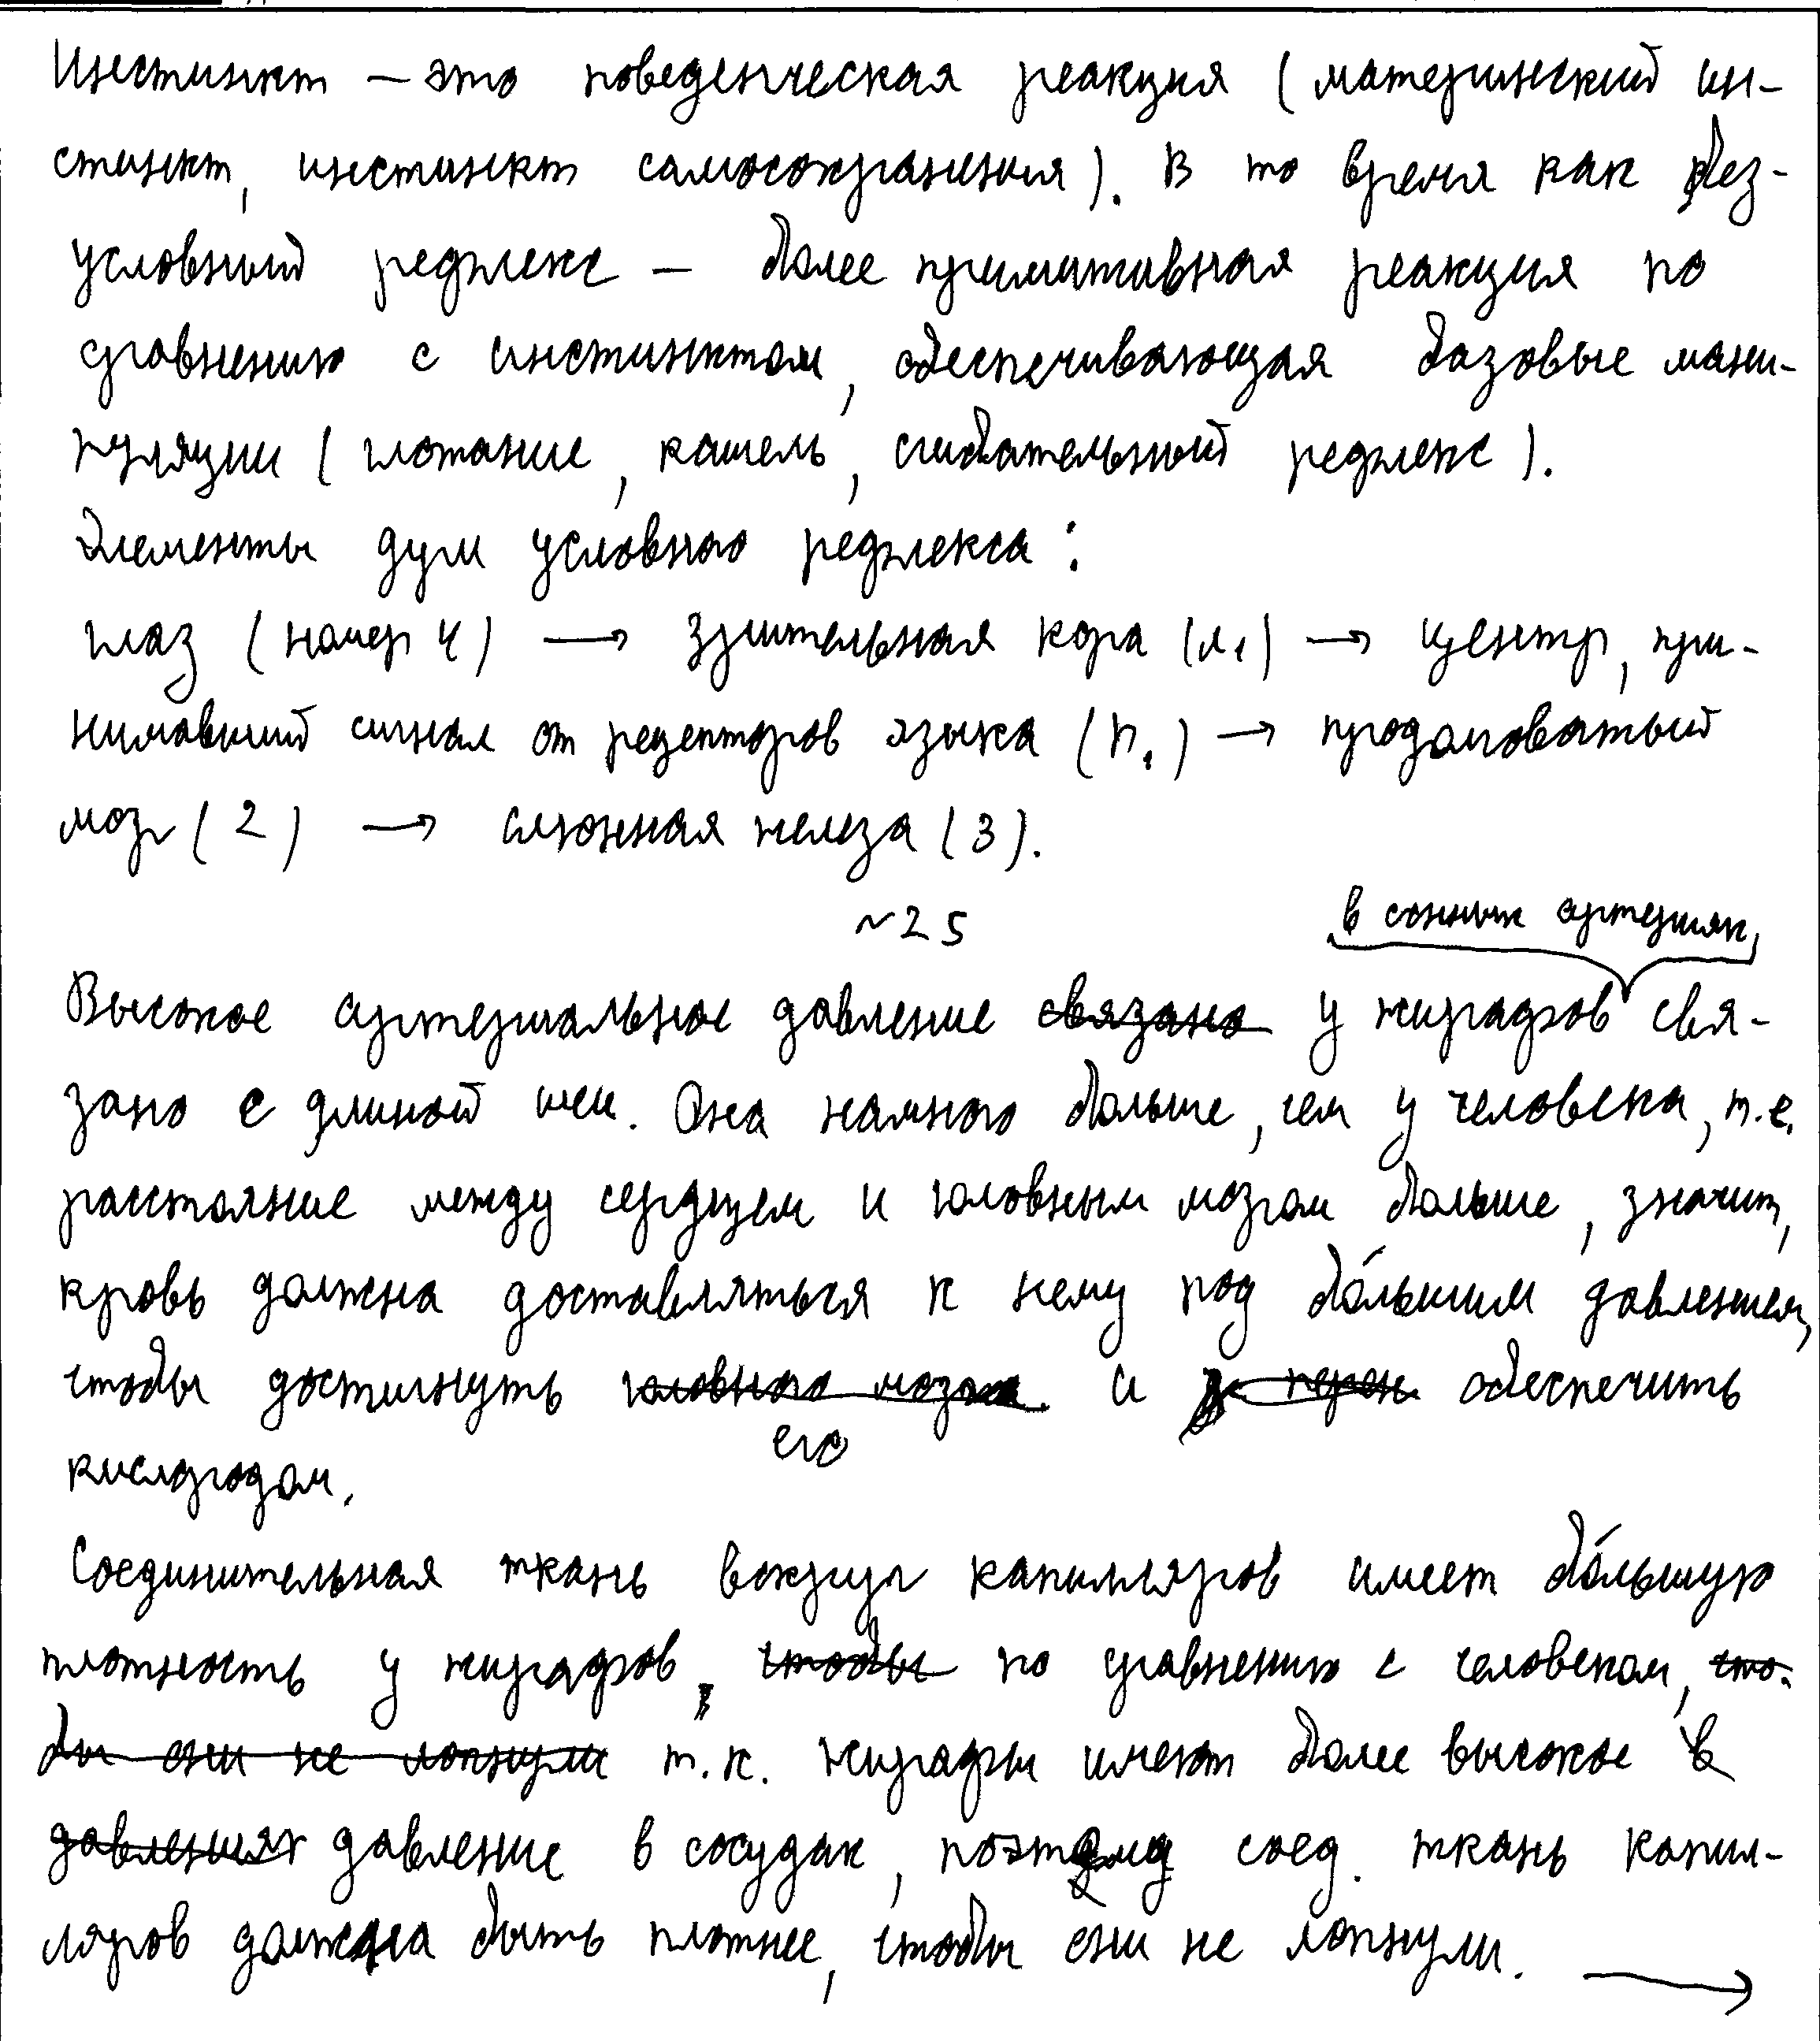 Инстинкт — это поведенческая реакция (материнский ин-
стинкт, инстинкт самосохранения). В то время как без-
условный рефлекс — более примитивная реакция по
сравнению с инстинктом, обеспечивающая базовые мани-
пуляции (глотание, кашель, сгибательный рефлекс).
Элементы дуги условного рефлекса:
глаз (номер 4) → зрительная кора (л₁) → центр, при-
нимавший сигнал от рецепторов языка (п₁) → продолговатый
мозг (2) → слюнная железа (3).
~25
в сонных артериях,
Высокое артериальное давление связано у жирафов свя-
зано с длиной шеи. Она намного больше, чем у человека, т.е.
расстояние между сердцем и головным мозгом больше, значит,
кровь должна доставляться к нему под бо́льшим давлением,
чтобы достигнуть головного мозга. и обеспечить
его
кислородом.
Соединительная ткань вокруг капилляров имеет бо́льшую
плотность у жирафов, чтобы по сравнению с человеком, что-
бы они не лопнули т.к. жирафы имеют более высокое в
давления давление в сосудах, поэтому соед. ткань капил-
ляров должна быть плотнее, чтобы они не лопнули. →